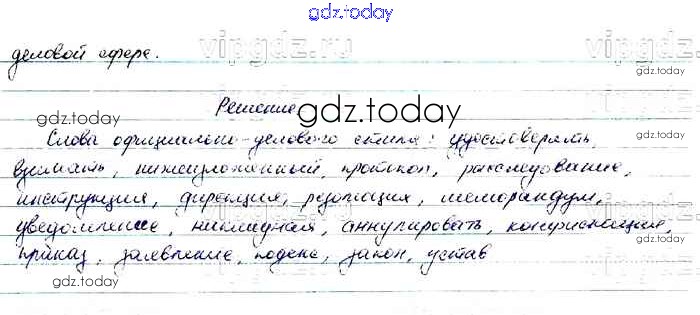 gdz.today
vipgdz.ru
деловой сфере.
gdz.today
gdz.today
Решение
gdz.today
Слова официально-делового стиля: удостоверять,
gdz.today
взимать, нижеизложенный, протокол, расследование,
инструкция, дирекция, резолюция, меморандум,
уведомление, накладная, аннулировать, конфискация,
vipgdz.ru
приказ, заявление, кодекс, закон, устав
gdz.today
gdz.today